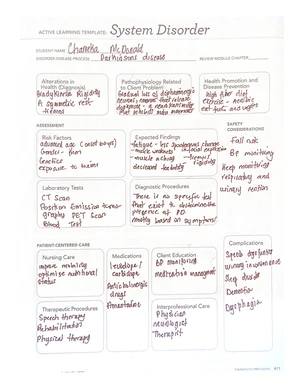 ACTIVE LEARNING TEMPLATE: System Disorder
STUDENT NAME Chanella McDonald
DISORDER/DISEASE PROCESS Parkinsons disease
REVIEW MODULE CHAPTER
Alterations in
Health (Diagnosis)
Bradykinesia Rigidity
Pathophysiology Related
to Client Problem
Gradual loss of dopaminergic
neurons, neurons that release
dopamine - a neurotransmitter
Health Promotion and
Disease Prevention
High fiber diet
exercise - aerobic
eat fruits and veggies
ASSESSMENT
SAFETY
CONSIDERATIONS
Risk Factors
advanced age
Gender men
Genetics
exposure to toxins
Expected Findings
fatigue - less spontaneous change
in facial expression
- muscle weakness
- muscle aching
- tremors
- rigidity
decreased
Fall risk
BP monitoring
Keep monitoring
respiratory and
urinary
Laboratory Tests
CT Scan
Position Emission tomo-
graphy PET Scan
Blood Test
Diagnostic Procedures
There is no specific test
that exist to determine the
presence of PD
mostly based on symptoms
PATIENT-CENTERED CARE
Complications
Nursing Care
improve mobility
optimize nutritional
status
Medications
levodopa/
carbidopa
Anticholinergic
drugs
Amantadine
Client Education
BP monitoring
medication management
Speech dysfunction
urinary incontinence
Sleep disorder
Dementia
Dysphagia
Therapeutic Procedures
Speech therapy
Rehabilitation
Physical therapy
Interprofessional Care
Physician
neurologist
Therapist